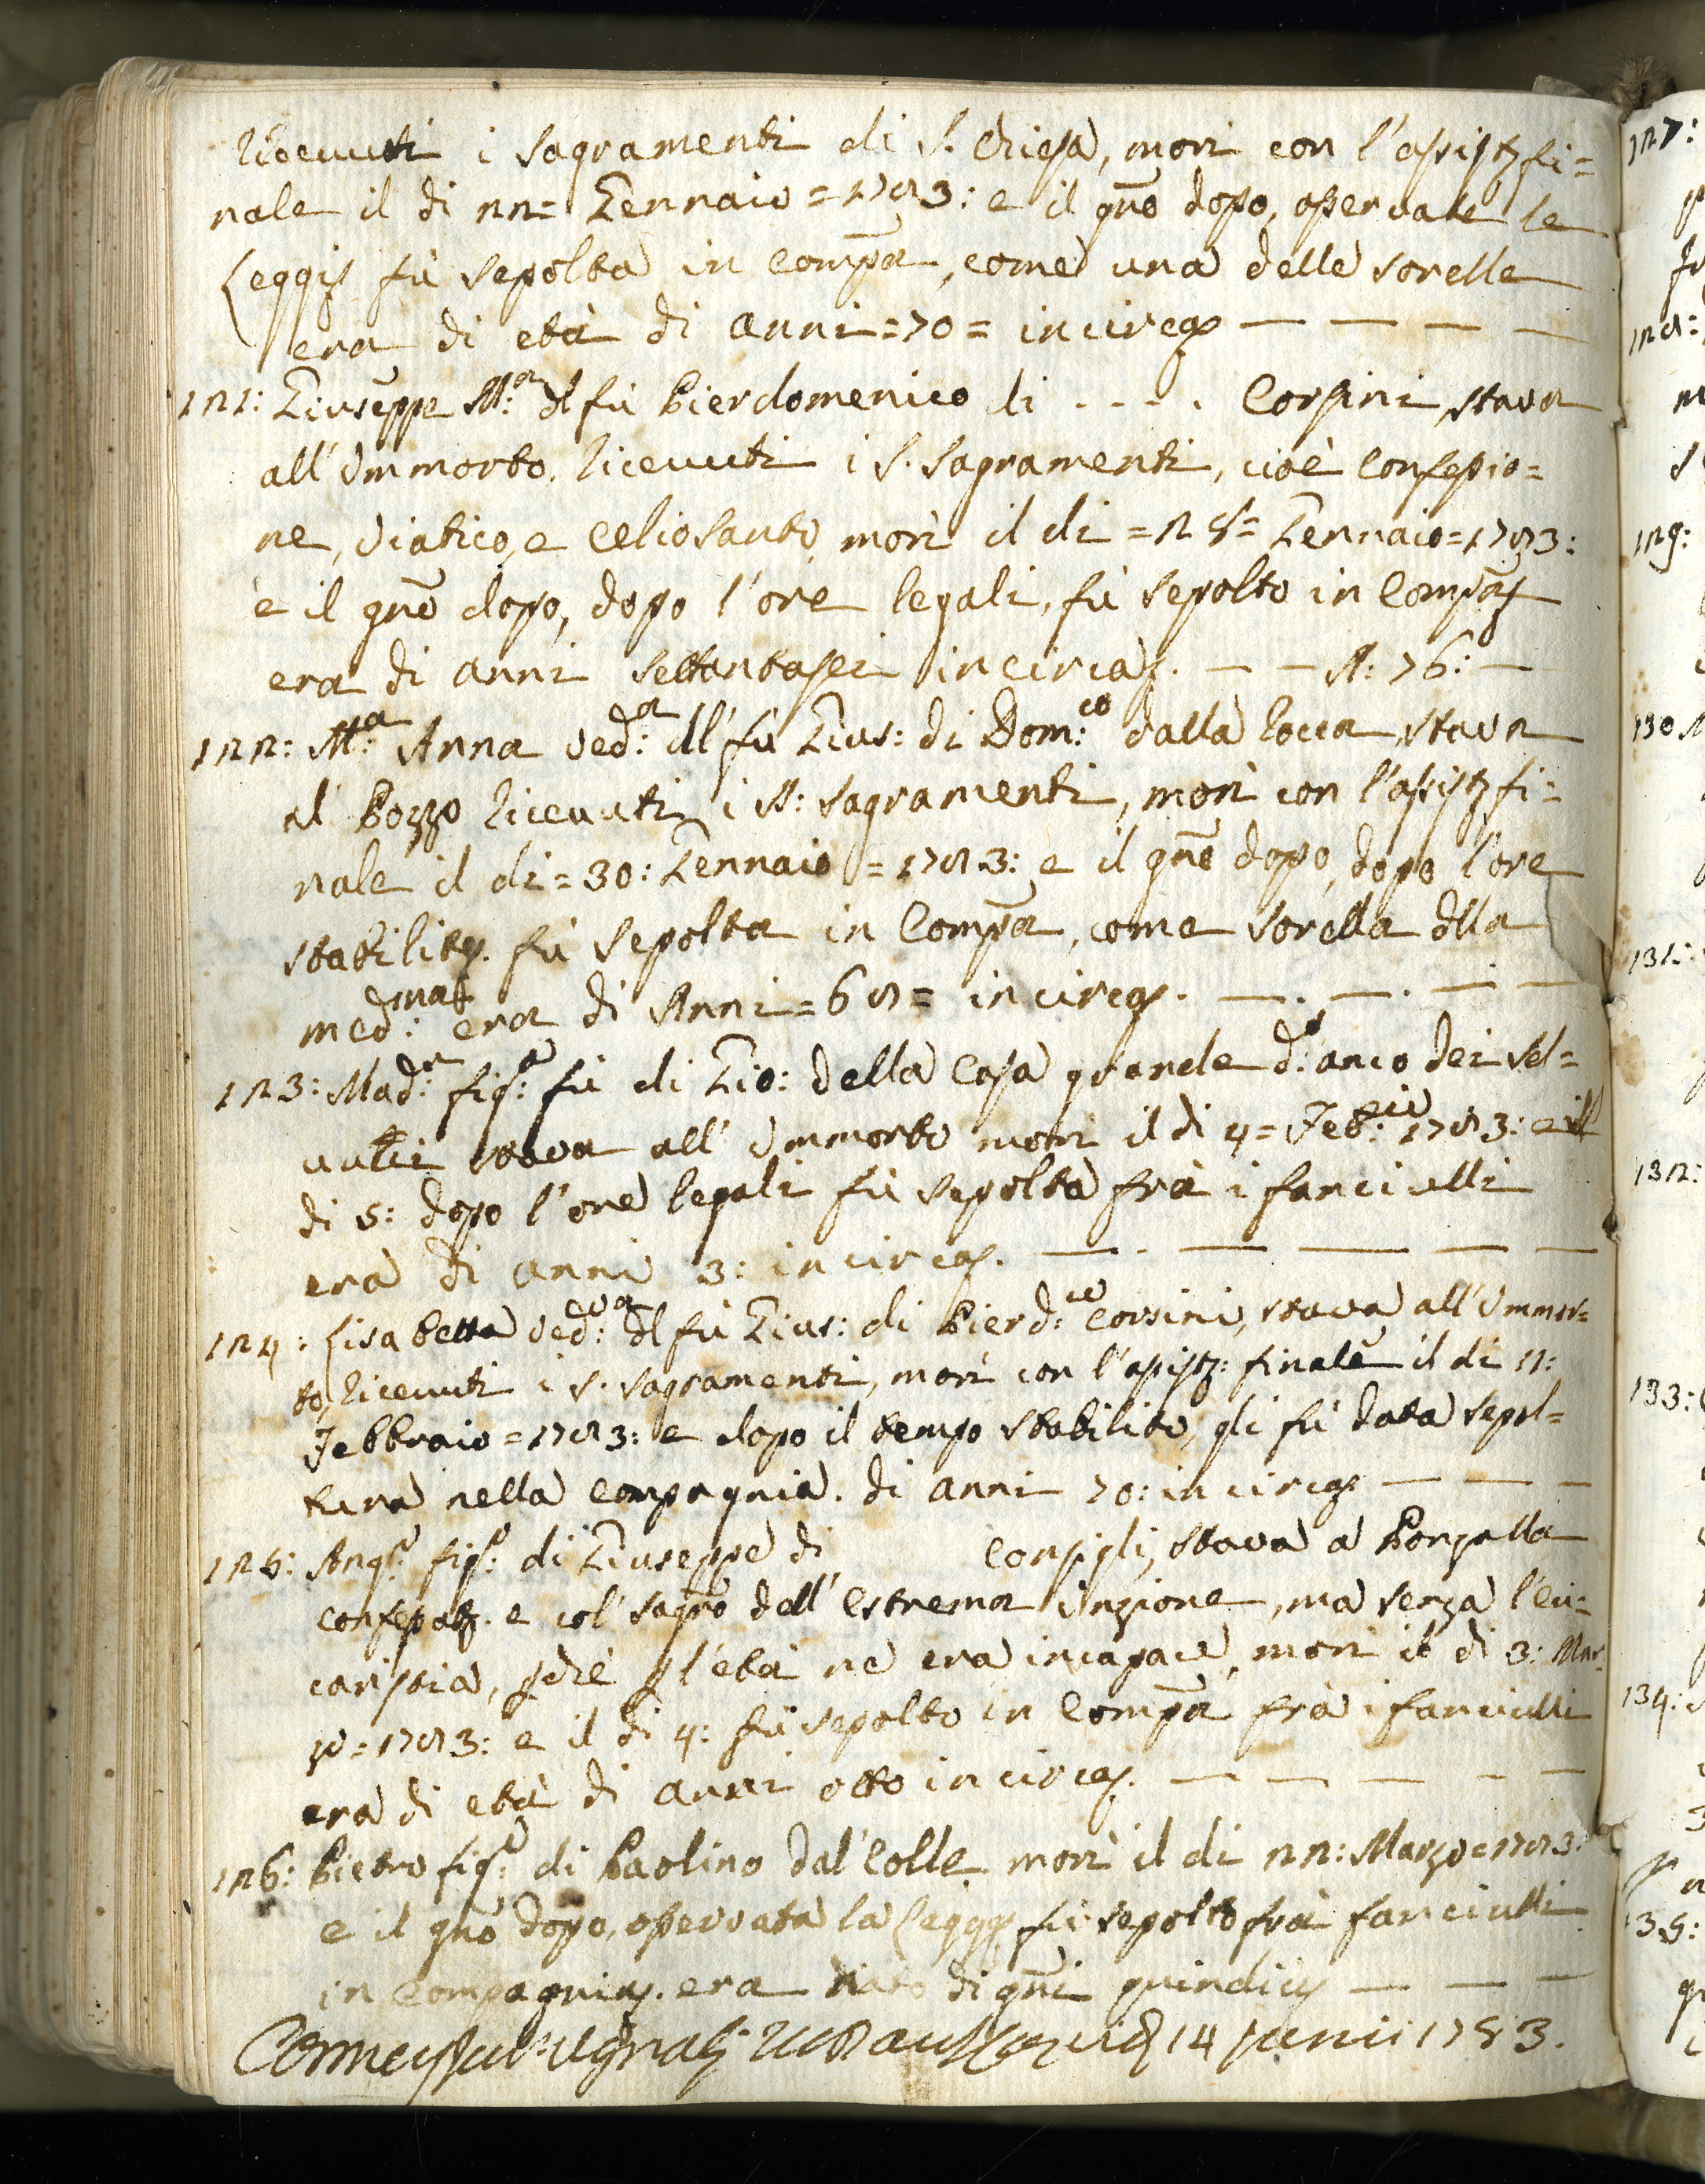 Ricevuti i Sagramenti di S. Chiesa, morì con l'assistz fi=
nale il dì 22= Gennaio = 1783: e il gno dopo, osservate le
Leggi, fù sepolta in Compa, come una delle sorelle
era di età di anni = 70 = incirca — — — —
121: Giuseppe Ma: dl fù Pierdomenico di . . . . Corsini, stava
all'Ommorto, Ricevuti i S. Sagramenti, cioè Confessio=
ne, Viatico, e Celiosanto, morì il dì = 28= Gennaio = 1783:
e il gno dopo, dopo l'ore legali, fù sepolto in Compa,
era di anni settantasei incirca. — — A: 76: —
122: Ma: Anna veda: dl' fù Gius: di Domco: dalla Rocca, stava
al Pozzo, Ricevuti i SS: Sagramenti, morì con l'assistz fi=
nale il dì = 30: Gennaio = 1783: e il gno dopo, dopo l'ore
stabilite, fù sepolta in Compa, come sorella dlla
medma: era di Anni = 68 = incirca. — . — . — . —
123: Mada: figa: fù di Gio: della Casa grande da: anco dei Sel=
vatici stava all'Ommorto morì il dì 4 = Febio: 1783: e il
dì 5: dopo l'ore legali fù sepolta frà i fanciulli
era di anni 3: incirca. — . — — — —
124: Lisabetta vedva: dl fù Gius: di Pierdco: Corsini, stava all'Ommor=
to, Ricevuti i S. Sagramenti, morì con l'assistz: finale il dì 11:
Febbraio = 1783: e dopo il tempo stabilito, gli fù data sepol=
tura nella Compagnia. di anni 70: incirca — — —
125: Angо: figо: di Giuseppe di Consigli, stava a Ponzalla
confessatz. e col' Sagro dell'Estrema Unzione, ma senza l'eu=
caristia, pchè pl'età ne era incapace, morì il dì 3: Mar=
zo = 1783: e il dì 4: fù sepolto in Compa frà i fanciulli
era di età di anni otto incirca. — — — — —
126: Pietro figо: di Paolino dal'Colle, morì il dì 22: Marzo = 1783:
e il gno dopo, osservata la Legge, fù sepolto frà fanciulli
in Compagnia, era nato di gni quindici — — —
14 Junii 1783.